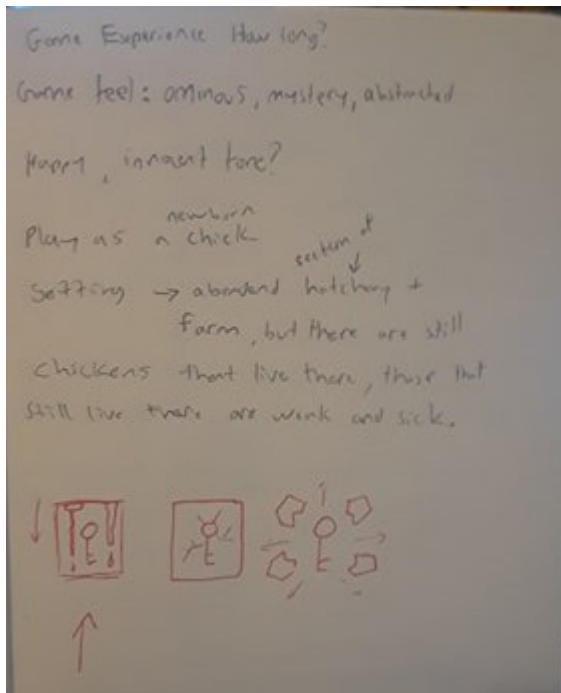 Game Experience How long?
Game feel: ominous, mystery, abstracted
Happy, innocent tone?
newborn
Play as a chick
section of
Setting → abandoned hatchery +
farm, but there are still
chickens that live there, those that
still live there are weak and sick.